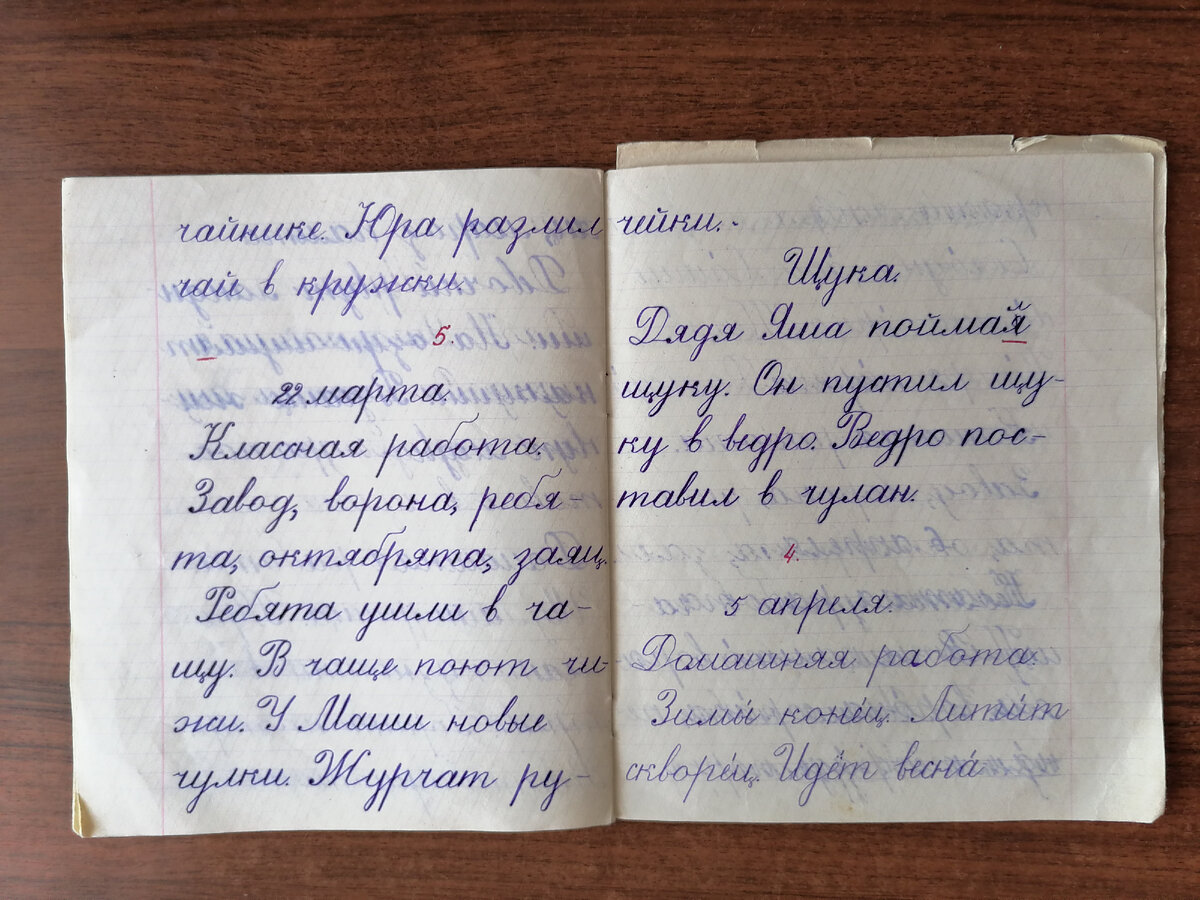 чайнике. Юра разлил
чай в кружки.
5.
22 марта.
Классная работа.
Завод, ворона, ребя
та, октябрята, заяц.
Ребята ушли в ча-
щу. В чаще поют чи-
жи. У Маши новые
чулки. Журчат ру-
чейки.
Щука.
Дядя Яша поймал
щуку. Он пустил щу-
ку в ведро. Ведро пос-
тавил в чулан.
4.
5 апреля.
Домашняя работа.
Зимы́ коне́ц. Лити́т
скворе́ц. Идёт весна́